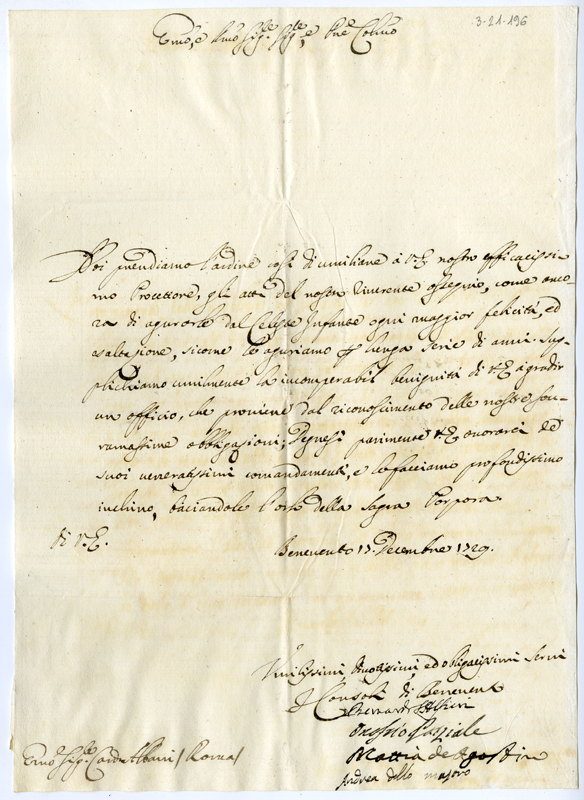 3-21-196
Emo, e Rmo Sig.re Sig.re e Pne Colmo
Noi prendiamo l'ardire così di umiliare à V.E. nostro efficacissi-
mo Protettore, gli atti del nostro riverente ossequio, come anco-
ra di agurarle dal Celeste Infante ogni maggior felicità, ed
esaltazione, sicome le aguriamo per lunga serie di anni. Sup-
plichiamo umilmente la incomparabil benignità di V.E. à gradir
un officio, che proviene dal riconoscimento delle nostre sou-
ranissime obbligazioni; Degnisi parimente V.E. onorarci de
suoi veneratissimi comandamenti, e le facciamo profondissimo
inchino, baciandole l'orlo della Sagra Porpora.
Di V.E.
Benevento 17. Decembre 1729.
Umilissimi, devotissimi, ed obligatissimi Servi
I Consoli di Benevento
Pasquale
Mattia de Agostin
Andrea dello
Emo Sig.re Card.e Albani / Roma /